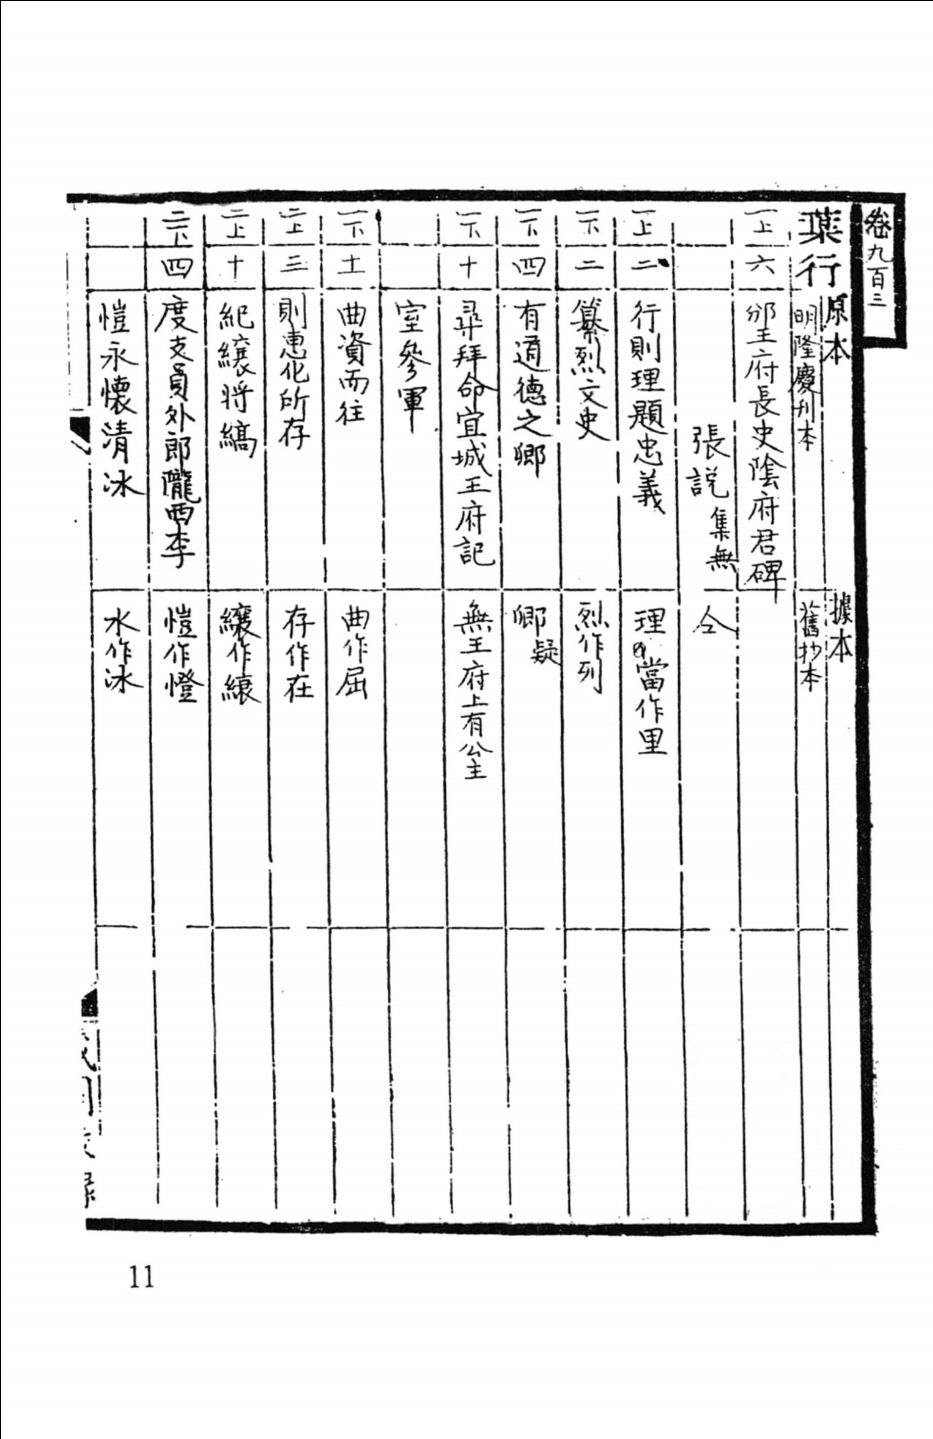 卷九百三
葉行 原本 明隆慶刊本 據本 舊抄本
一上 六 邠王府長史陰府君碑
張説 集無 仝
一上 二 行則理題忠義 理當作里
一下 二 纂烈文史 烈作列
一下 四 有道德之鄉 鄉疑
一下 十 尋拜命宜城王府記 無王府上有公主
室參軍
一下 十一 曲資而往 曲作屈
二上 三 則惠化所存 存作在
二上 十 紀纕将縞 纕作縗
二下 四 度支員外郎隴西李 愷作憕
愷永懷清冰 水作冰
11